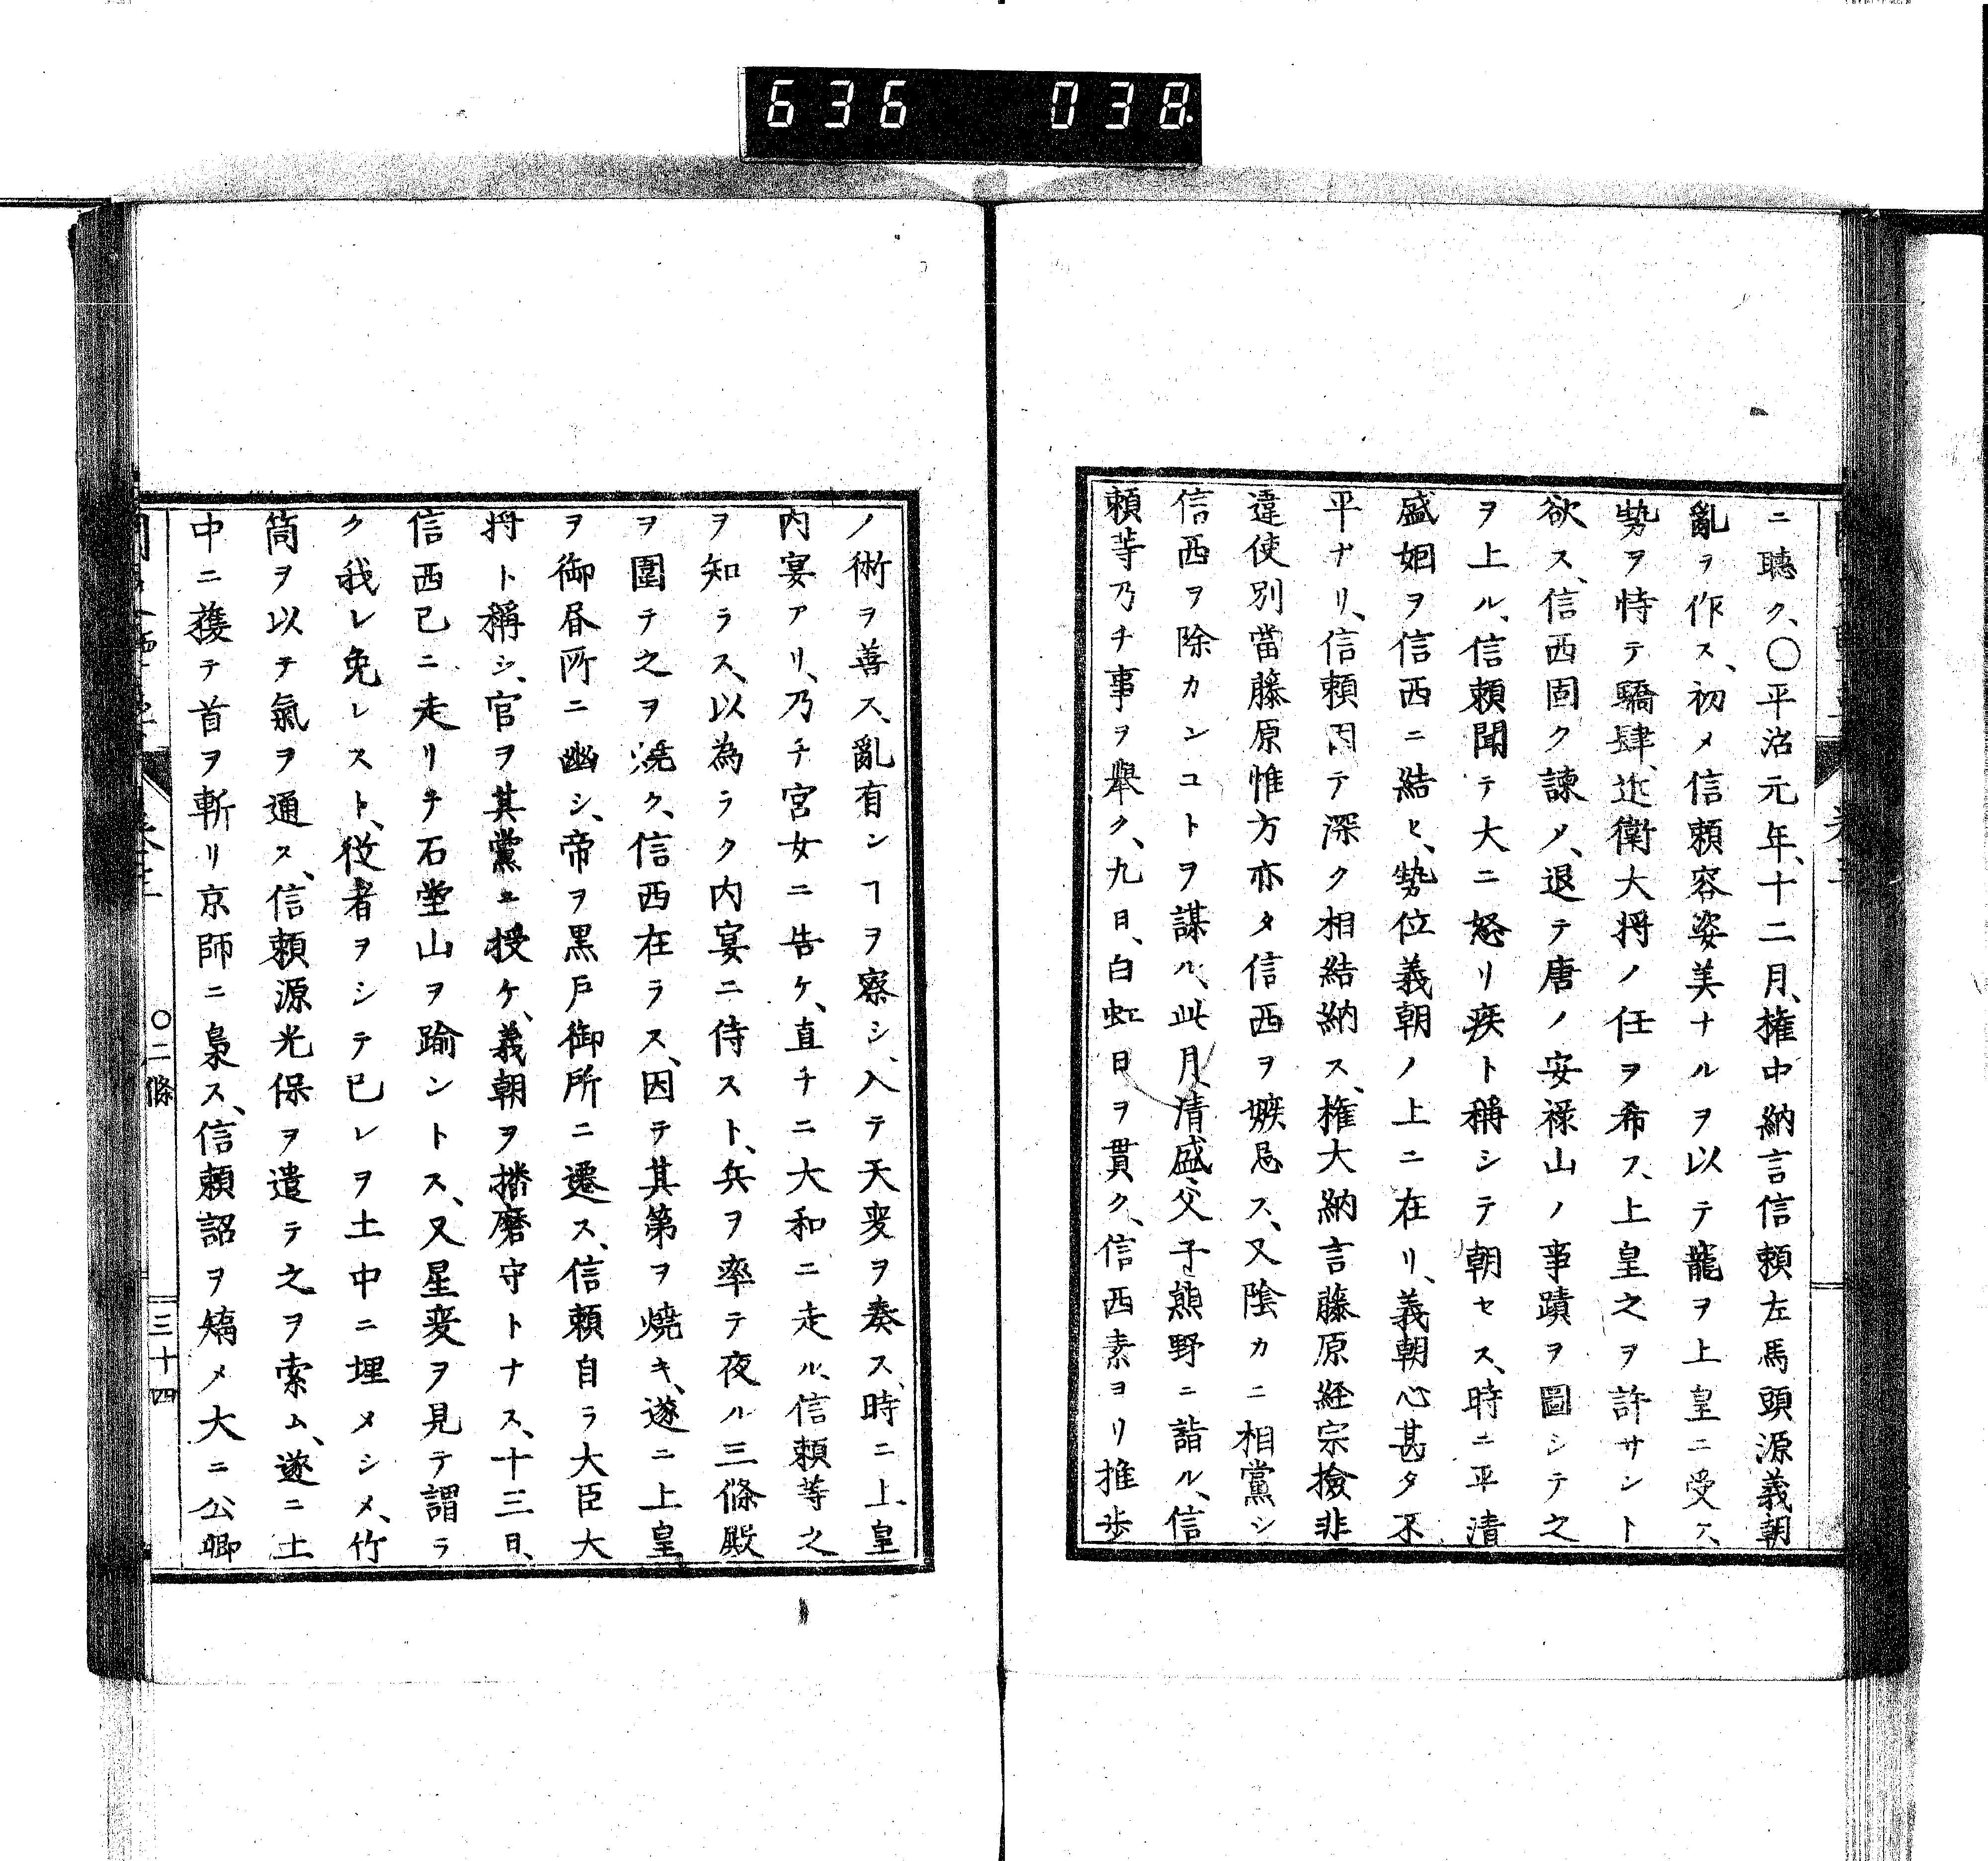 636 038
ニ聽ク、〇平治元年、十二月、権中納言信頼左馬頭源義朝
亂ヲ作ス、初メ信頼容姿美ナルヲ以テ寵ヲ上皇ニ受ク、
勢ヲ恃テ驕肆、近衛大将ノ任ヲ希フ、上皇之ヲ許サント
欲ス、信西固ク諫メ、退テ唐ノ安禄山ノ事蹟ヲ圖シテ之
ヲ上ル、信頼聞テ大ニ怒リ疾ト稱シテ朝セス、時ニ平清
盛姻ヲ信西ニ結ヒ、勢位義朝ノ上ニ在リ、義朝心甚タ不
平ナリ、信頼因テ深ク相結納ス、権大納言藤原経宗撿非
違使別當藤原惟方亦タ信西ヲ嫉忌ス、又陰カニ相黨シ
信西ヲ除カンコトヲ謀ル、此月清盛父子熊野ニ詣ル、信
頼等乃チ事ヲ舉ク、九日、白虹日ヲ貫ク、信西素ヨリ推歩
ノ術ヲ善ス、亂有ンヿヲ察シ、入テ天変ヲ奏ス、時ニ上皇
内宴アリ、乃チ宮女ニ告ケ、直チニ大和ニ走ル、信頼等之
ヲ知ラス、以為ラク内宴ニ侍スト、兵ヲ率テ夜ル三條殿
ヲ圍テ之ヲ焼ク、信西在ラス、因テ其第ヲ燒キ、遂ニ上皇
ヲ御昼所ニ幽シ、帝ヲ黒戸御所ニ遷ス、信頼自ラ大臣大
将ト稱シ、官ヲ其黨ニ授ケ、義朝ヲ播磨守トナス、十三日、
信西已ニ走リチ石堂山ヲ踰ントス、又星変ヲ見テ謂ラ
ク我レ免レスト、従者ヲシテ已レヲ土中ニ埋メシメ、竹
筒ヲ以テ氣ヲ通ス、信頼源光保ヲ遣テ之ヲ索ム、遂ニ土
中ニ獲テ首ヲ斬リ京師ニ梟ス、信頼詔ヲ矯メ大ニ公卿
〇二條
三十四